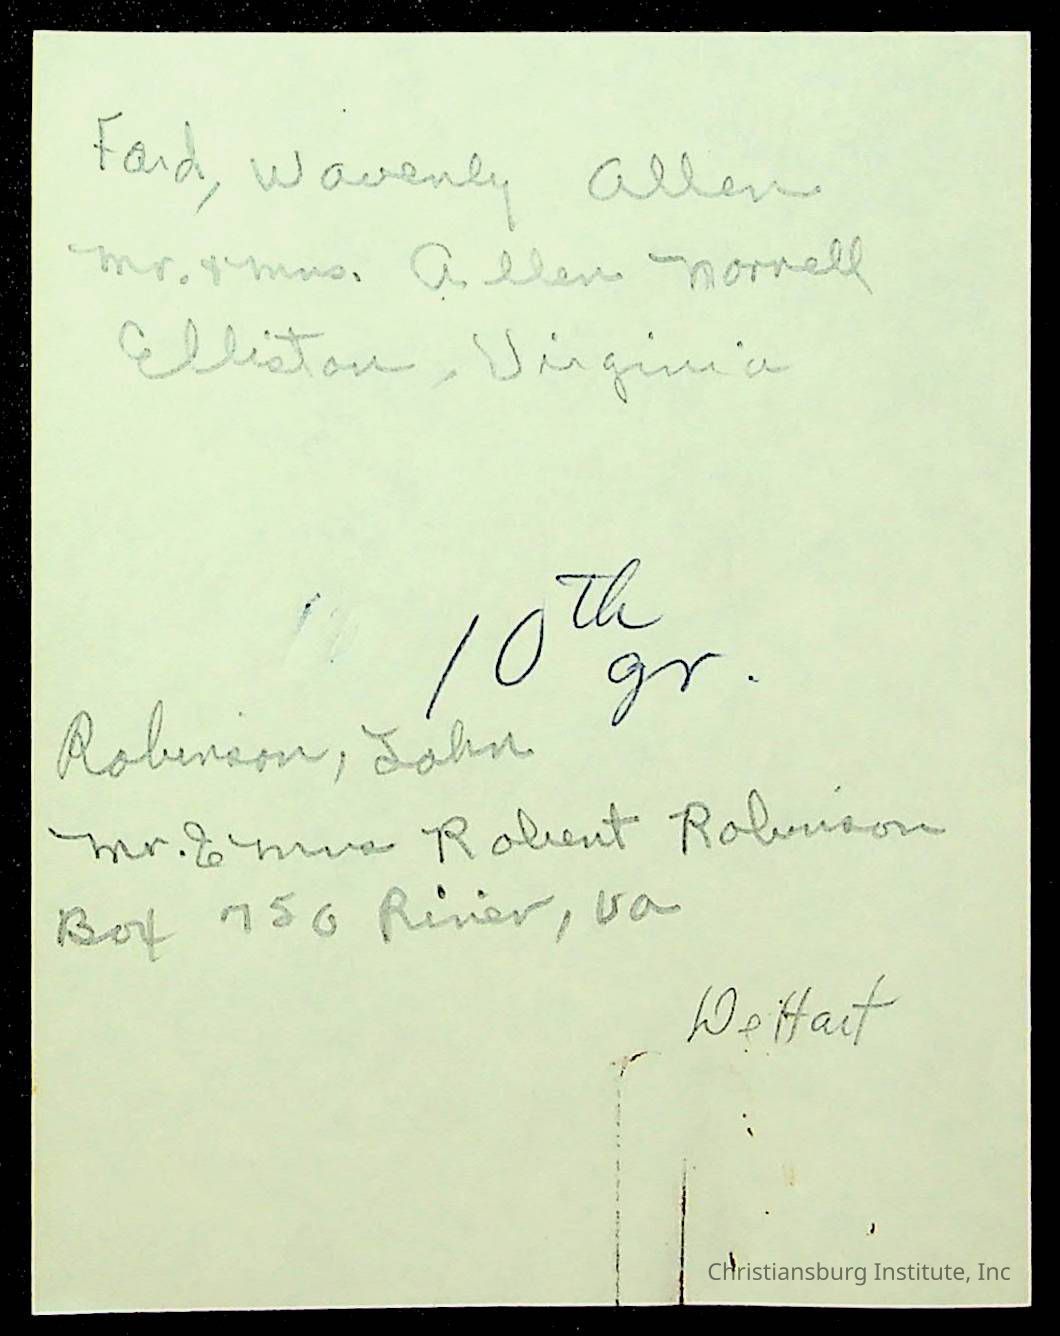 Ford, Wavenly Allen
Mr. & Mrs. Allen Morrell
Elliston, Virginia
10th
gr.
Robinson, John
Mr. & Mrs Robert Robinson
Box 756 Riner, Va
DeHart
Christiansburg Institute, Inc